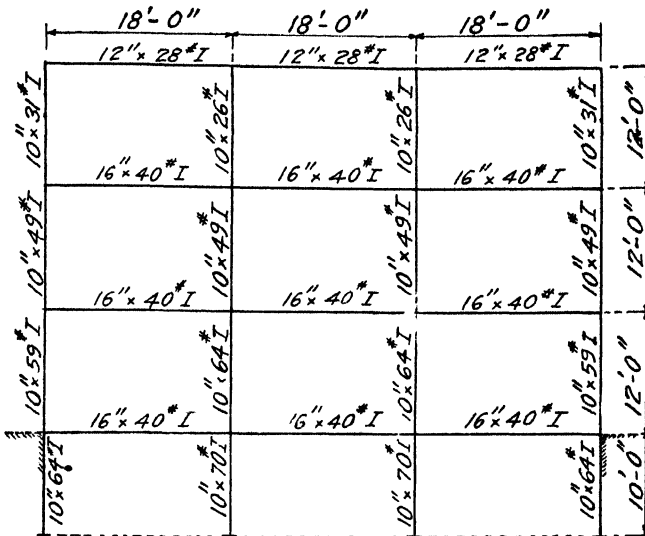 18'-0" 18'-0" 18'-0"
12"×28#I 12"×28#I 12"×28#I
10"×31#I 10"×26#I 10"×26#I 10"×31#I 12'-0"
16"×40#I 16"×40#I 16"×40#I
10"×49#I 10"×49#I 10"×49#I 10"×49#I 12'-0"
16"×40#I 16"×40#I 16"×40#I
10"×59#I 10"×64#I 10"×64#I 10"×59#I 12'-0"
16"×40#I 16"×40#I 16"×40#I
10"×64#I 10"×70#I 10"×70#I 10"×64#I 10'-0"